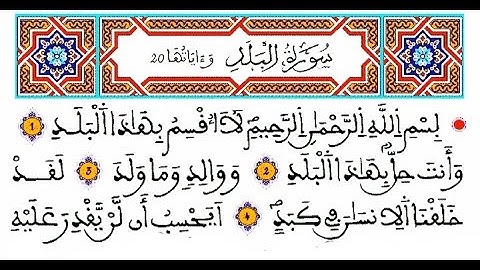 سُورَةُ الْبَلَدِ وَءَايَاتُهَا 20
بِسْمِ اِ۬للَّهِ اِ۬لرَّحْمَٰنِ اِ۬لرَّحِيمِ لَآ أُقْسِمُ بِهَٰذَا اَ۬لْبَلَدِ 1
وَأَنتَ حِلُّۢ بِهَٰذَا اَ۬لْبَلَدِ 2 وَوَالِدٍ وَمَا وَلَدَ 3 لَقَدْ
خَلَقْنَا اَ۬لِانسَٰنَ فِے كَبَدٍ 4 اَيَحْسِبُ أَن لَّنْ يَّقْدِرَ عَلَيْهِ